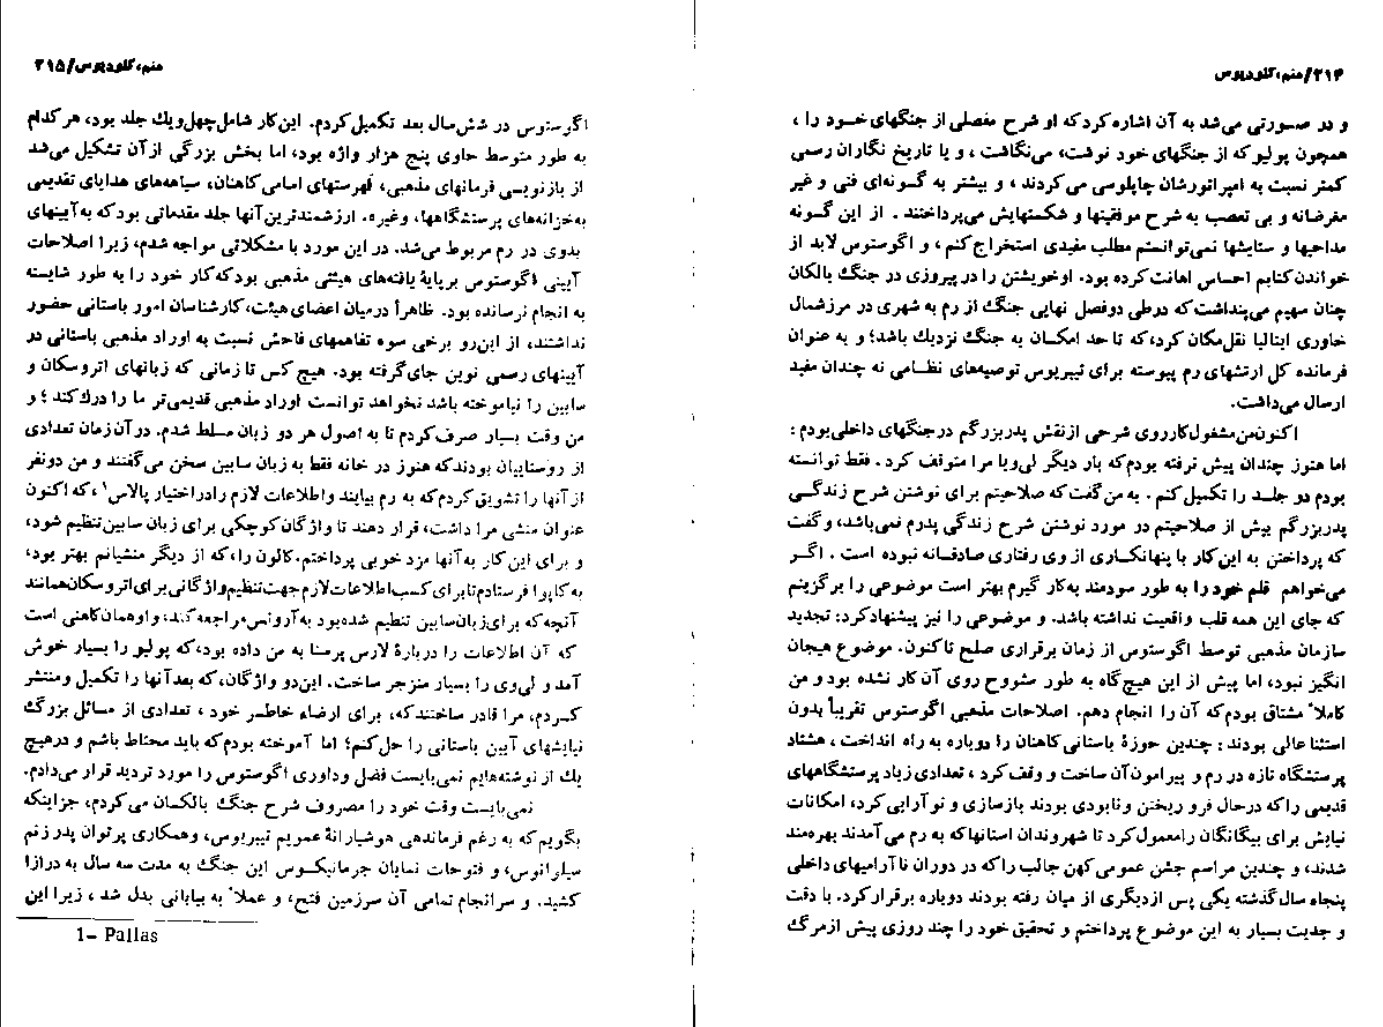 ۲۱۴/منم، کلودیوس
و در صورتی می‌شد به آن اشاره کرد که او شرح مفصلی از جنگهای خود را ،
همچون پولیو که از جنگهای خود نوشت، می‌نگاشت ، و یا تاریخ نگاران رسمی
کمتر نسبت به امپراتورشان چاپلوسی می‌کردند ، و بیشتر به گونه‌ای فنی و غیر
مغرضانه و بی تعصب به شرح موفقیتها و شکستهایش می‌پرداختند . از این گونه
مداحیها و ستایشها نمی‌توانستم مطلب مفیدی استخراج کنم ، و اگوستوس لابد از
خواندن کتابم احساس اهانت کرده بود. او خویشتن را در پیروزی در جنگ بالکان
چنان سهیم می‌پنداشت که در طی دو فصل نهایی جنگ از رم به شهری در مرز شمال
خاوری ایتالیا نقل مکان کرد، که تا حد امکان به جنگ نزدیك باشد؛ و به عنوان
فرمانده کل ارتشهای رم پیوسته برای تیبریوس توصیه‌های نظامی نه چندان مفید
ارسال می‌داشت.
اکنون من مشغول کار روی شرحی از نقش پدربزرگم در جنگهای داخلی بودم :
اما هنوز چندان پیش نرفته بودم که بار دیگر لی‌ویا مرا متوقف کرد . فقط توانسته
بودم دو جلد را تکمیل کنم . به من گفت که صلاحیتم برای نوشتن شرح زندگی
پدربزرگم بیش از صلاحیتم در مورد نوشتن شرح زندگی پدرم نمی‌باشد، و گفت
که پرداختن به این کار با پنهانکاری از وی رفتاری صادقانه نبوده است . اگر
می‌خواهم قلم خود را به طور سودمند به کار گیرم بهتر است موضوعی را برگزینم
که جای این همه قلب واقعیت نداشته باشد. و موضوعی را نیز پیشنهاد کرد: تجدید
سازمان مذهبی توسط اگوستوس از زمان برقراری صلح تا کنون. موضوع هیجان
انگیز نبود، اما پیش از این هیچ گاه به طور مشروح روی آن کار نشده بود و من
کاملاً مشتاق بودم که آن را انجام دهم. اصلاحات مذهبی اگوستوس تقریباً بدون
استثنا عالی بودند : چندین حوزهٔ باستانی کاهنان را دوباره به راه انداخت ، هشتاد
پرستشگاه تازه در رم و پیرامون آن ساخت و وقف کرد ، تعدادی زیاد پرستشگاههای
قدیمی را که در حال فرو ریختن و نابودی بودند بازسازی و نوآرایی کرد، امکانات
نیایش برای بیگانگان را معمول کرد تا شهروندان استانها که به رم می‌آمدند بهره‌مند
شدند، و چندین مراسم جشن عمومی کهن جالب را که در دوران ناآرامیهای داخلی
پنجاه سال گذشته یکی پس از دیگری از میان رفته بودند دوباره برقرار کرد. با دقت
و جدیت بسیار به این موضوع پرداختم و تحقیق خود را چند روزی پیش از مرگ
منم، کلودیوس/۲۱۵
اگوستوس در شش سال بعد تکمیل کردم. این کار شامل چهل و یك جلد بود، هر کدام
به طور متوسط حاوی پنج هزار واژه بود، اما بخش بزرگی از آن تشکیل می‌شد
از بازنویسی فرمانهای مذهبی، فهرستهای اسامی کاهنان، سیاهه‌های هدایای تقدیمی
به خزانه‌های پرستشگاهها، وغیره. ارزشمندترین آنها جلد مقدماتی بود که به آیینهای
بدوی در رم مربوط می‌شد. در این مورد با مشکلاتی مواجه شدم، زیرا اصلاحات
آیینی اگوستوس بر پایهٔ یافته‌های هیئتی مذهبی بود که کار خود را به طور شایسته
به انجام نرسانده بود. ظاهراً در میان اعضای هیئت، کارشناسان امور باستانی حضور
نداشتند، از این‌رو برخی سوء تفاهمهای فاحش نسبت به اوراد مذهبی باستانی در
آیینهای رسمی نوین جای گرفته بود. هیچ کس تا زمانی که زبانهای اتروسکان و
سابین را نیاموخته باشد نخواهد توانست اوراد مذهبی قدیمی‌تر ما را درك کند ؛ و
من وقت بسیار صرف کردم تا به اصول هر دو زبان مسلط شدم. در آن زمان تعدادی
از روستاییان بودند که هنوز در خانه فقط به زبان سابین سخن می‌گفتند و من دو نفر
از آنها را تشویق کردم که به رم بیایند و اطلاعات لازم را در اختیار پالاس۱ ، که اکنون
عنوان منشی مرا داشت، قرار دهند تا واژگان کوچکی برای زبان سابین تنظیم شود،
و برای این کار به آنها مزد خوبی پرداختم. کالون را، که از دیگر منشیانم بهتر بود،
به کاپوا فرستادم تا برای کسب اطلاعات لازم جهت تنظیم واژگانی برای اتروسکان همانند
آنچه که برای زبان سابین تنظیم شده بود به آرونس مراجعه کند، و او همان کاهنی است
که آن اطلاعات را دربارهٔ لارس پرسنا به من داده بود، که پولیو را بسیار خوش
آمد و لی‌وی را بسیار منزجر ساخت. این دو واژگان، که بعد آنها را تکمیل و منتشر
کردم، مرا قادر ساختند که، برای ارضاء خاطر خود ، تعدادی از مسائل بزرگ
نیایشهای آیین باستانی را حل کنم؛ اما آموخته بودم که باید محتاط باشم و در هیچ
یك از نوشته‌هایم نمی‌بایست فضل و داوری اگوستوس را مورد تردید قرار می‌دادم.
نمی‌بایست وقت خود را مصروف شرح جنگ بالکان می‌کردم، جز اینکه
بگویم که به رغم فرماندهی هوشیارانهٔ عمویم تیبریوس، و همکاری پرتوان پدر زنم
سیلوانوس، و فتوحات نمایان جرمانیکوس این جنگ به مدت سه سال به درازا
کشید. و سرانجام تمامی آن سرزمین فتح، و عملاً به بیابانی بدل شد ، زیرا این
1- Pallas